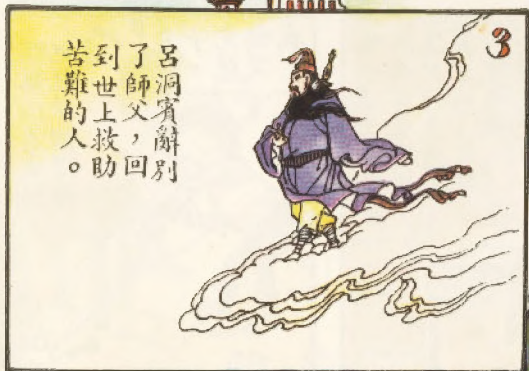 3
呂洞賓辭別
了師父，回
到世上救助
苦難的人。